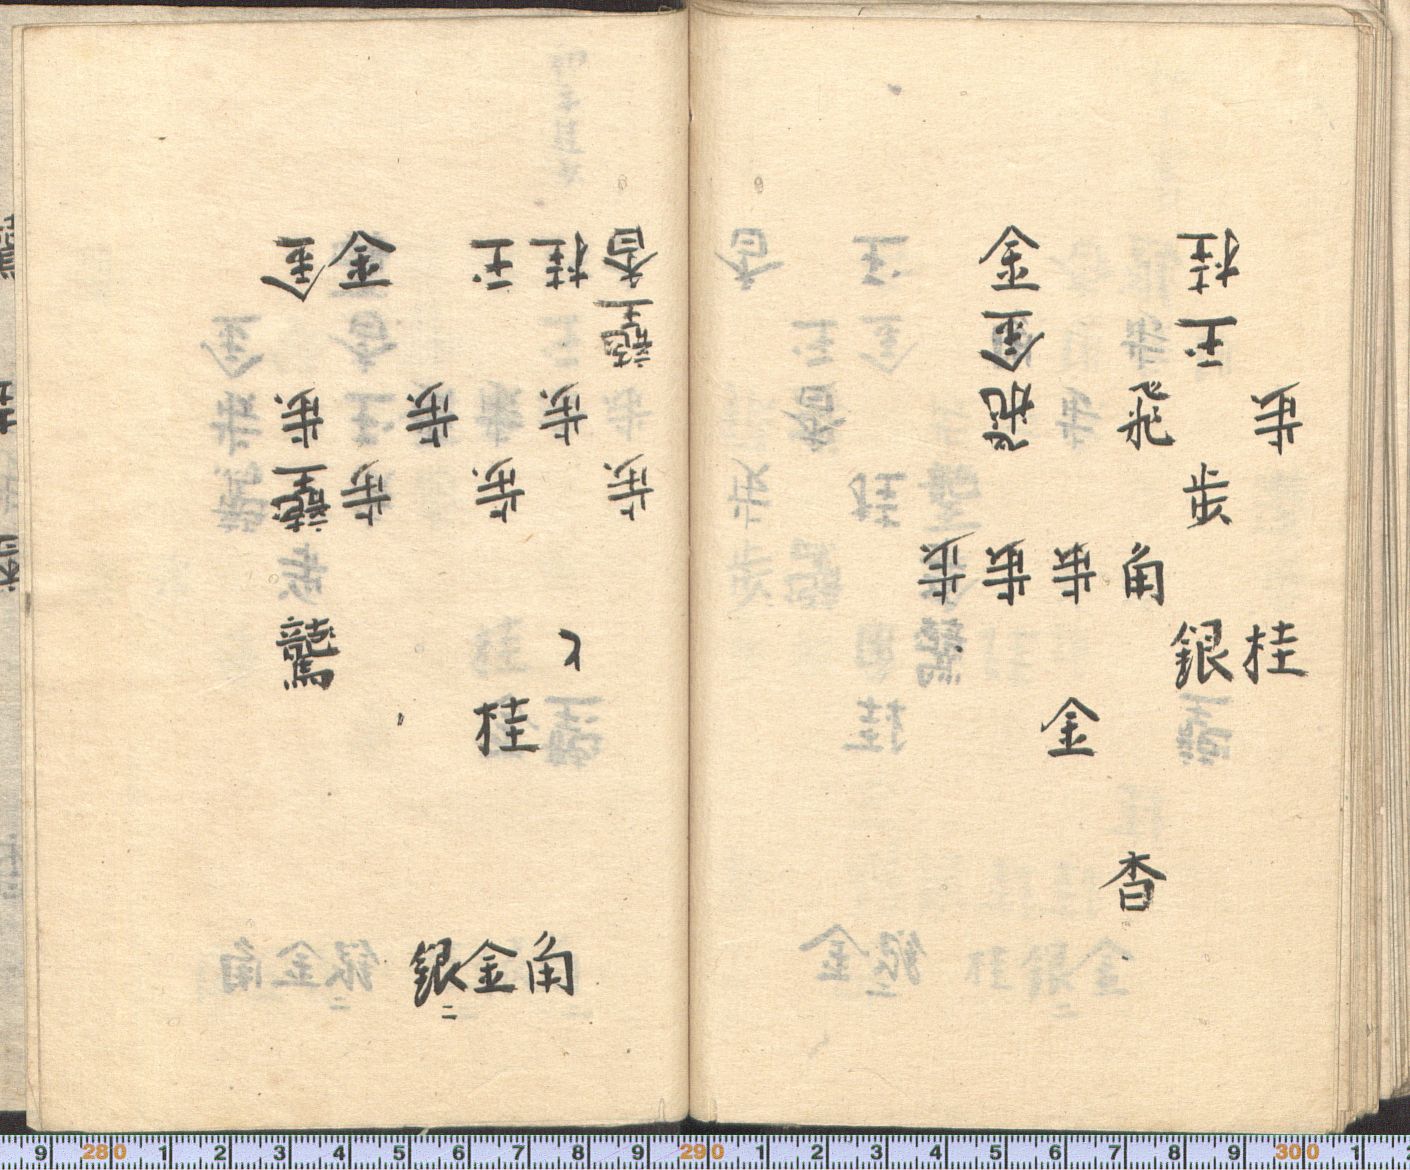 歩桂
桂玉歩銀
飛角香
歩金
金金飛歩
歩
香龍王歩
桂歩と
玉歩桂
歩
金歩
金歩龍王龍馬
角金銀二
9 280 1 2 3 4 5 6 7 8 9 290 1 2 3 4 5 6 7 8 9 300 1 2